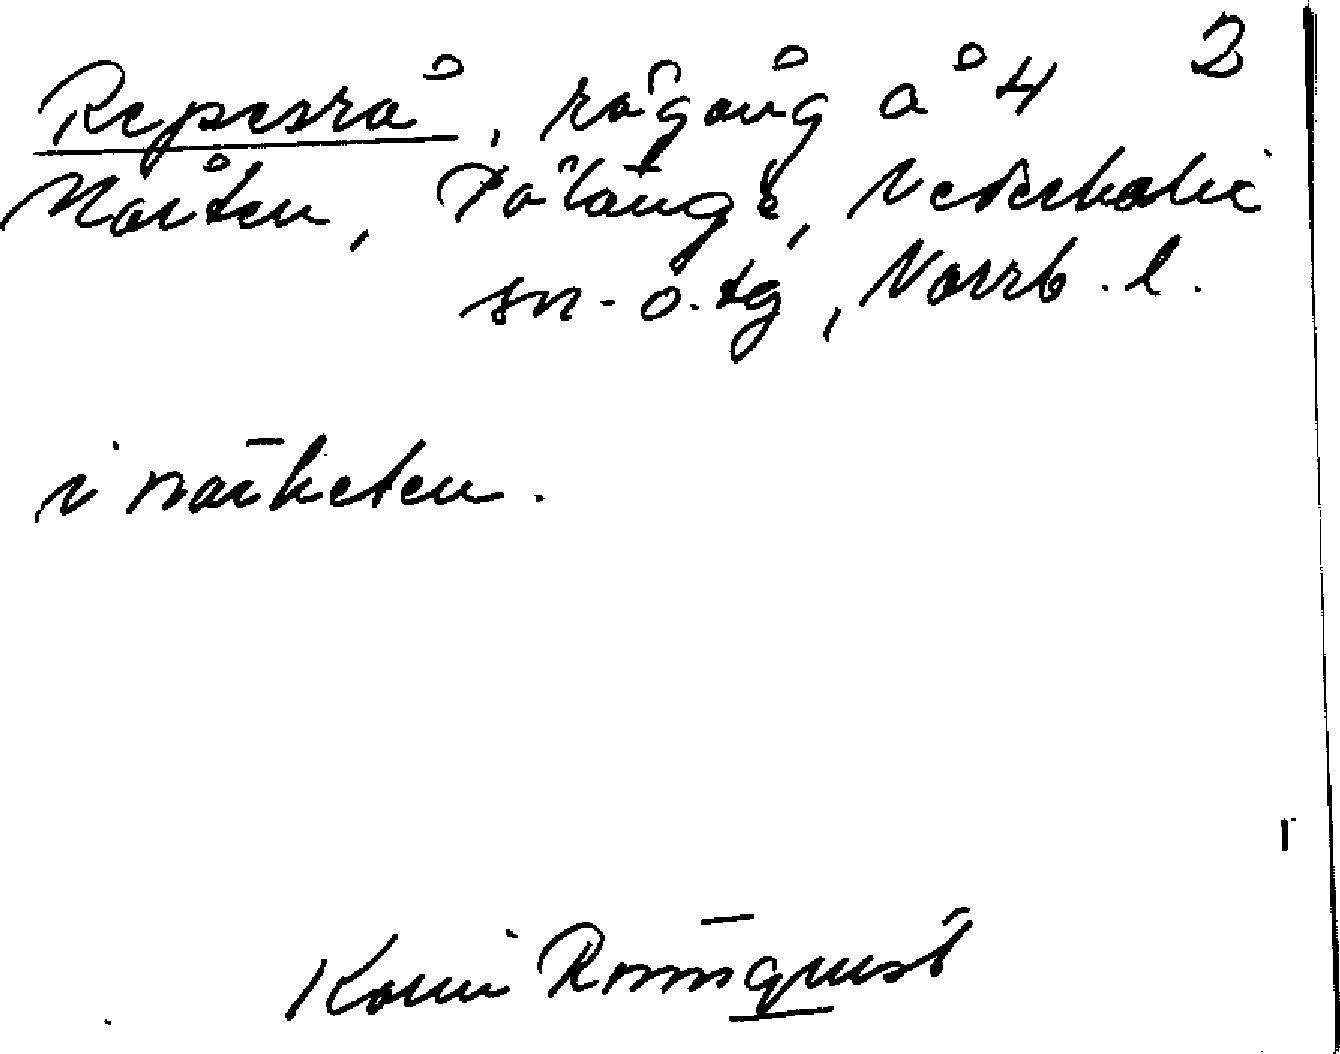 2
Repesrå, rågång å 4
Mårten, Pålänge, Nederkalix
sn. o. tg, Norrb. l.
i närheten.
Karin Rönnquist